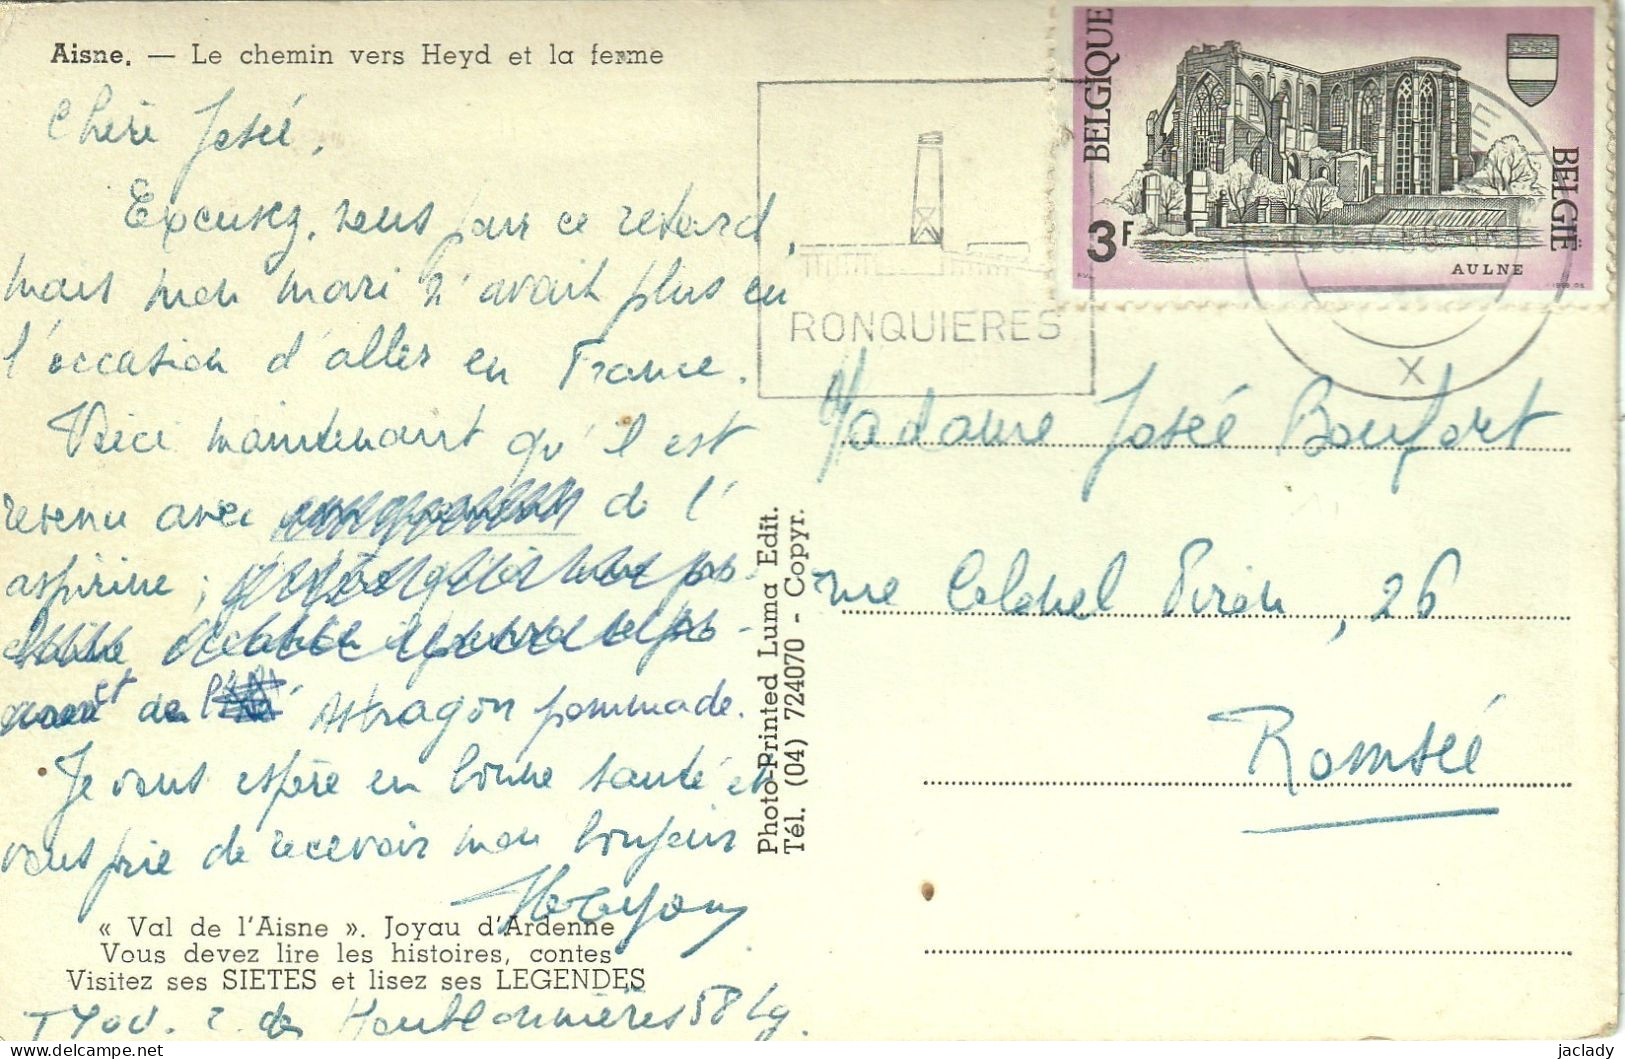 Aisne. — Le chemin vers Heyd et la ferme
Chère Josée,
Excusez, nous pour ce retard,
mais mon mari n'avait plus eu
l'occasion d'aller en France.
Voici maintenant qu'il est
revenu avec de l'
aspirine ;
et de l' Astragon pommade.
Je vous espère en bonne santé et
vous prie de recevoir mon bonjour
« Val de l'Aisne ». Joyau d'Ardenne
Vous devez lire les histoires, contes
Visitez ses SIETES et lisez ses LEGENDES
r. des 58 Lg.
Photo-Printed Luma Edit.
Tél. (04) 724070 - Copyr.
RONQUIERES
BELGIQUE
BELGIË
3F
AULNE
X
Madame Josée Boufort
rue Colonel Piron, 26
Romsée
jaclady